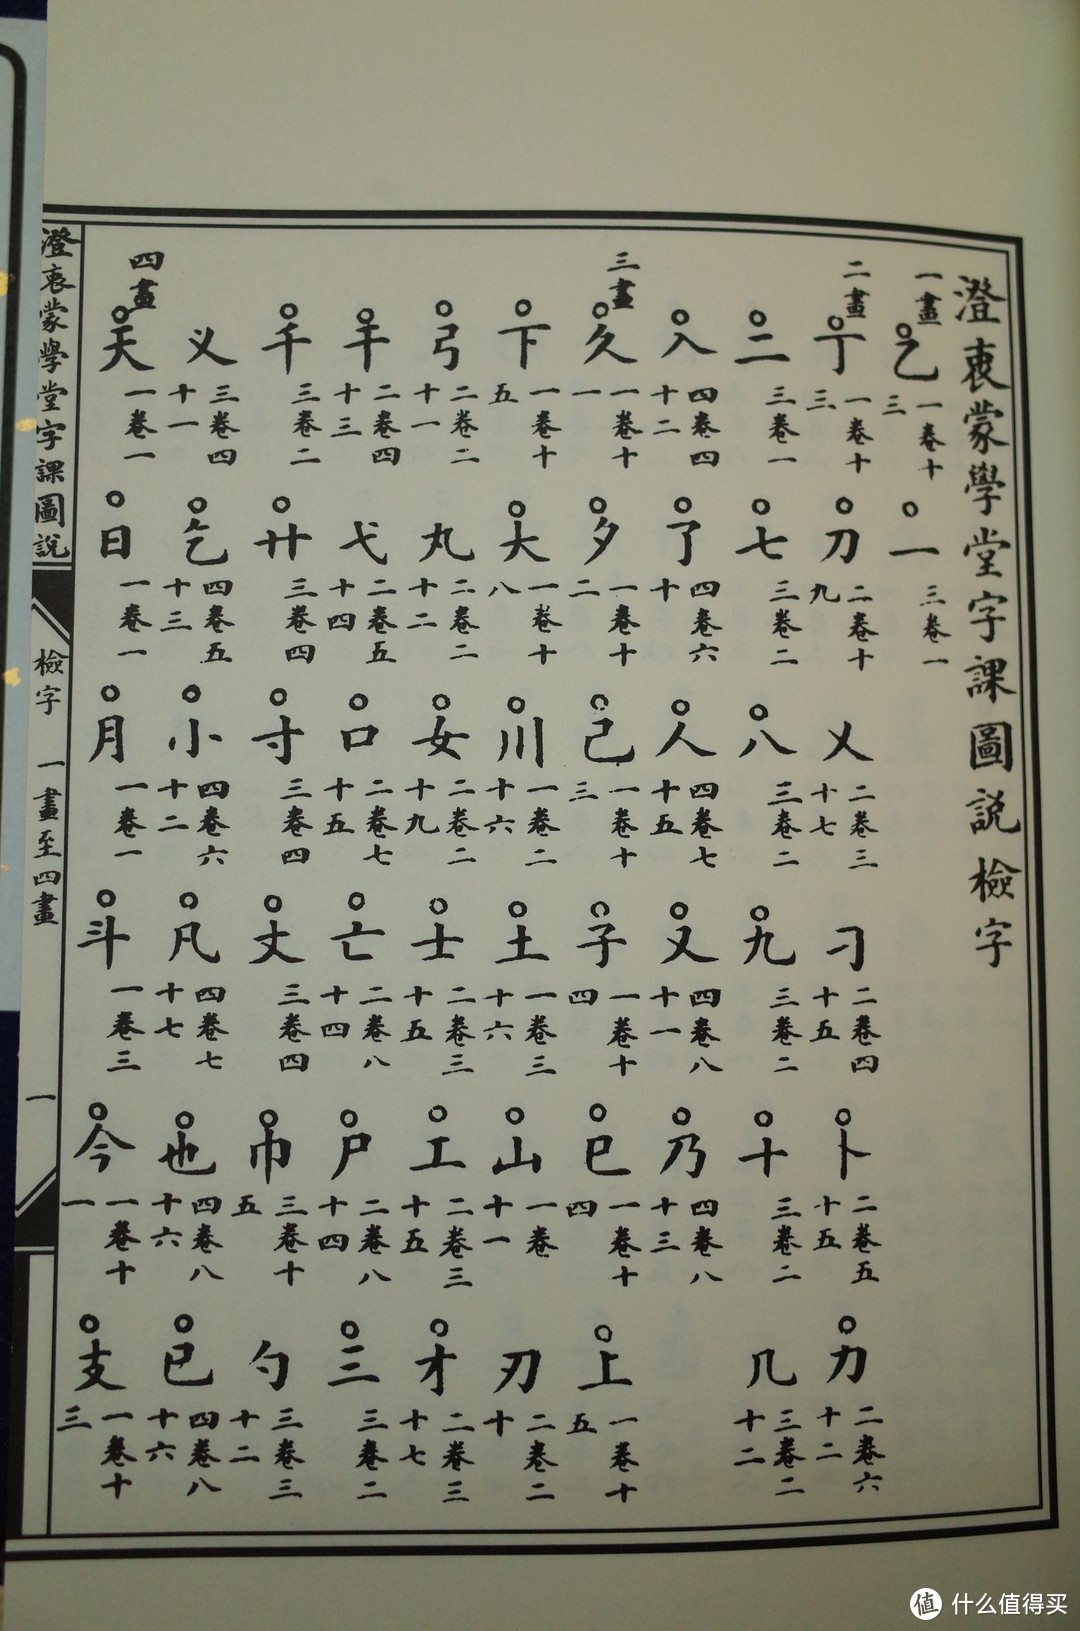 澄衷蒙學堂字課圖說檢字
一畫 乙 一卷十三 一 三卷一
二畫 丁 一卷十三 刀 二卷十九 乂 二卷三十七 刁 二卷四十五 卜 二卷五十五 力 二卷六十二
二 三卷一 七 三卷二 八 三卷二 九 三卷二 十 三卷二 几 三卷二十二
入 四卷四十二 了 四卷六十 人 四卷七十五 又 四卷八十一 乃 四卷八十三
三畫 久 一卷十一 夕 一卷十二 己 一卷十三 子 一卷十四 巳 一卷十四 上 一卷十五
下 一卷十五 大 一卷十八 川 一卷二十六 土 一卷三十六 山 一卷十一 刃 二卷二十
弓 二卷二十一 丸 二卷二十二 女 二卷二十九 士 二卷三十五 工 二卷三十五 才 二卷三十七
干 二卷四十三 弋 二卷五十四 口 二卷七十五 亡 二卷八十四 尸 二卷八十四 三 三卷二
千 三卷二 廿 三卷四 寸 三卷四 丈 三卷四 巾 三卷十五 勺 三卷三十二
义 三卷四十一 乞 四卷五十三 小 四卷六十二 凡 四卷七十七 也 四卷八十六 已 四卷八十六
四畫 天 一卷一 日 一卷一 月 一卷一 斗 一卷三 今 一卷十一 支 一卷十三
澄衷蒙學堂字課圖說 檢字 一畫至四畫 一
值 什么值得买